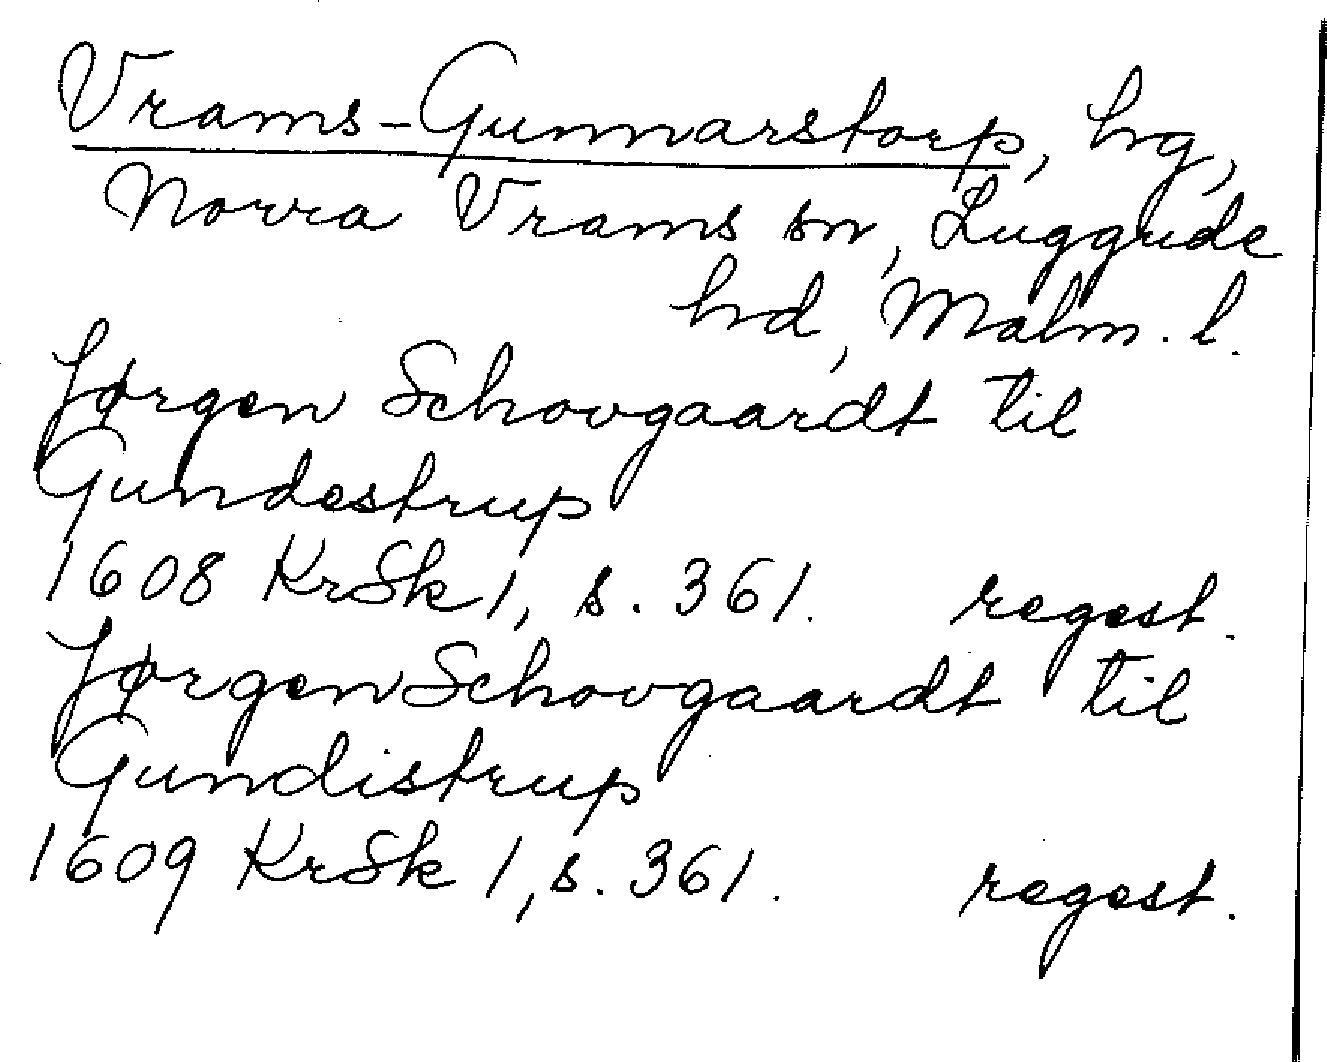 Vrams-Gunnarstorp, hg,
Norra Vrams sn, Luggude
hd, Malm. l.
Jørgen Schovgaardt til
Gundestrup
1608 KrSk 1, s. 361. regest.
Jørgen Schovgaardt til
Gundistrup
1609 KrSk 1, s. 361. regest.